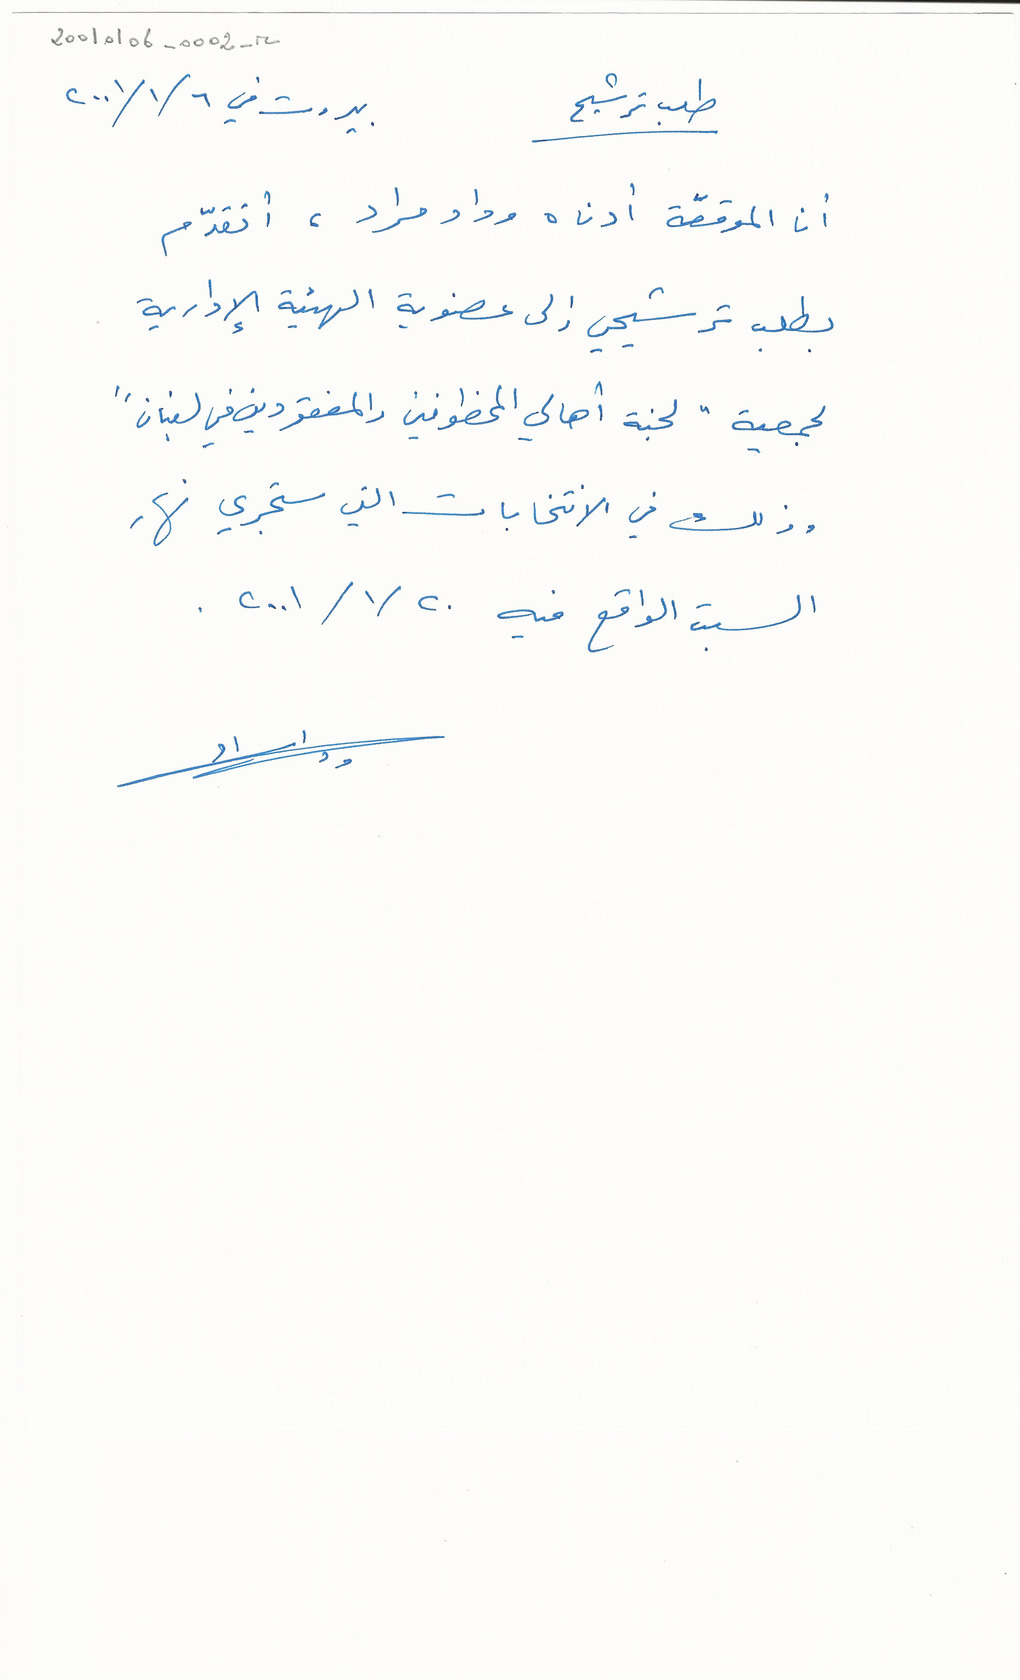 20010106_0002_r
طلب ترشيح
بيروت في ٢٠٠١/١/٦
أنا الموقعّة أدناه وداد مراد ، أتقدّم
بطلب ترشيحي إلى عضوية الهيئة الإدارية
لجمعية "لجنة أهالي المخطوفين والمفقودين في لبنان"
وذلك في الانتخابات التي ستجري نهار
السبت الواقع فيه ٢٠٠١/١/٢٠ .